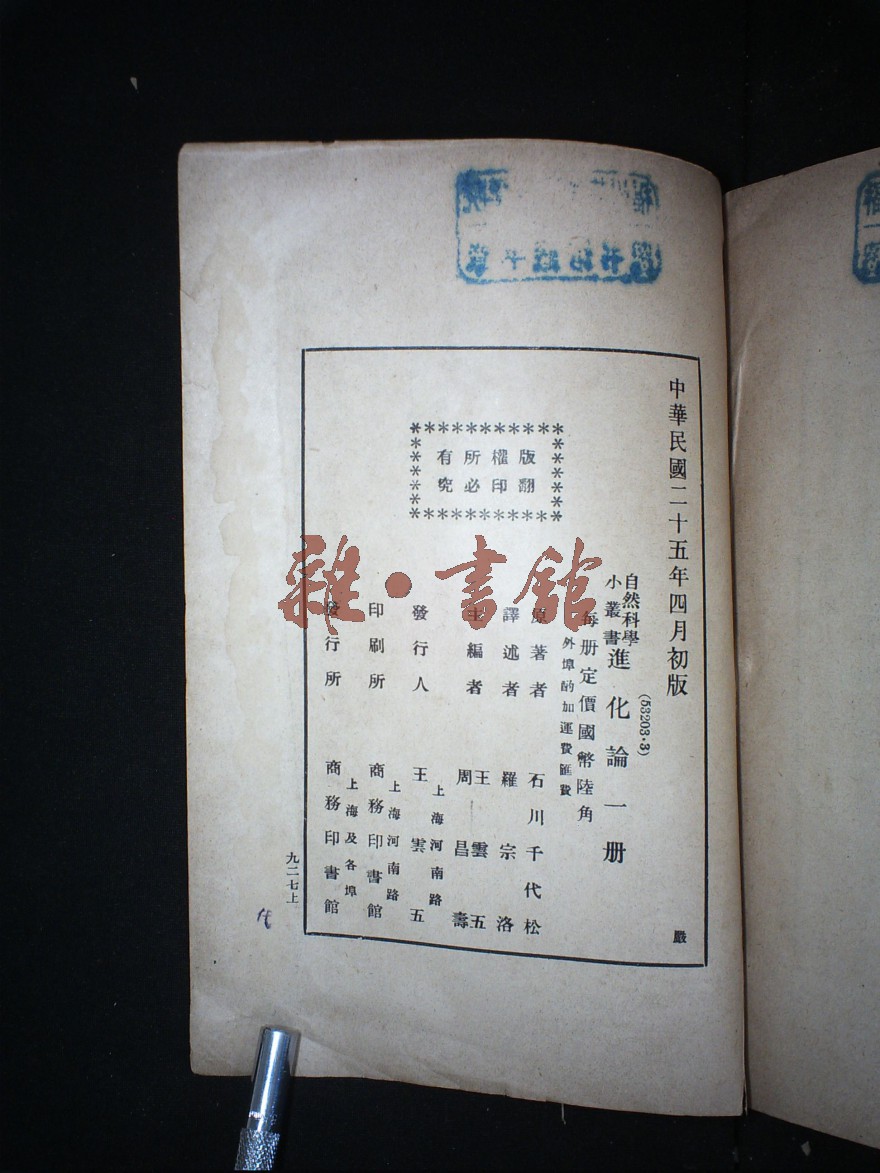 中華民國二十五年四月初版
(53203·3)
自然科學
小叢書
進化論一册
每册定價國幣陸角
外埠酌加運費匯費
版權所有
翻印必究
原著者 石川千代松
譯述者 羅宗洛
主編者 王雲五
周昌壽
發行人 王雲五
上海河南路
印刷所 商務印書館
上海河南路
發行所 商務印書館
上海及各埠
九二七上
嚴
雜·書館